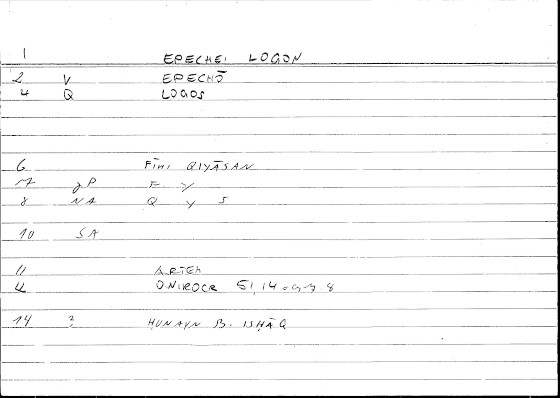 1 EPECHEI LOGON
2 V EPECHŌ
4 Q LOGOS
6 FĪHI QIYĀSAN
7 gP F Y
8 NA Q Y S
10 SA
11 ARTEM
ONIROCR 51,14 = 9,7 8
14 ? HUNAYN B. ISHĀQ